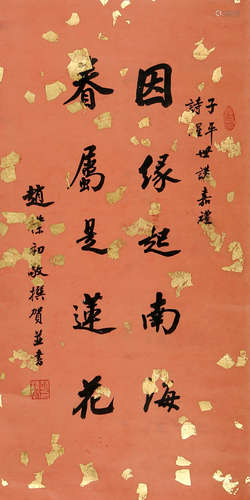 子平世讲嘉礼
诗星
因緣起南海
眷屬是蓮花
趙樸初敬撰賀並書